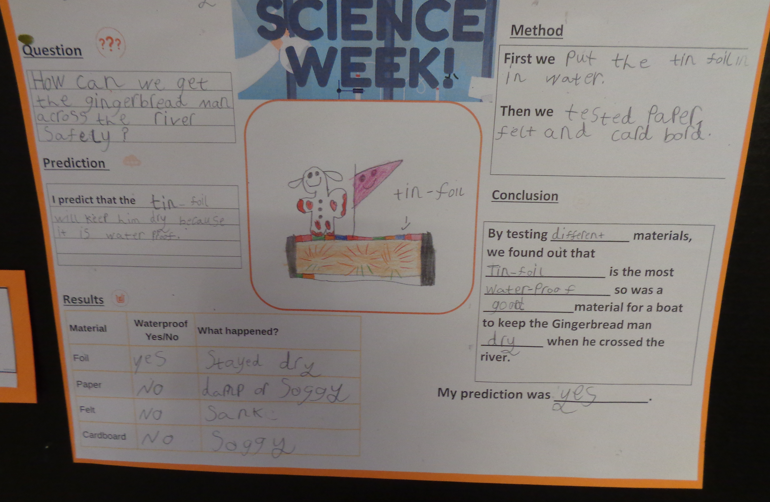 SCIENCE
WEEK!
Question
???
How can we get
the gingerbread man
across the river
Safely?
Prediction
I predict that the tin-foil
will keep him dry because
it is water proof.
tin-foil
Results
Material Waterproof Yes/No What happened?
Foil yes Stayed dry
Paper No damp or Soggy
Felt No Sank.
Cardboard No Soggy
Method
First we Put the tin foil in
in water.
Then we tested Paper,
felt and card bord.
Conclusion
By testing different materials,
we found out that
Tin-foil is the most
water-Proof so was a
good material for a boat
to keep the Gingerbread man
dry when he crossed the
river.
My prediction was yes.